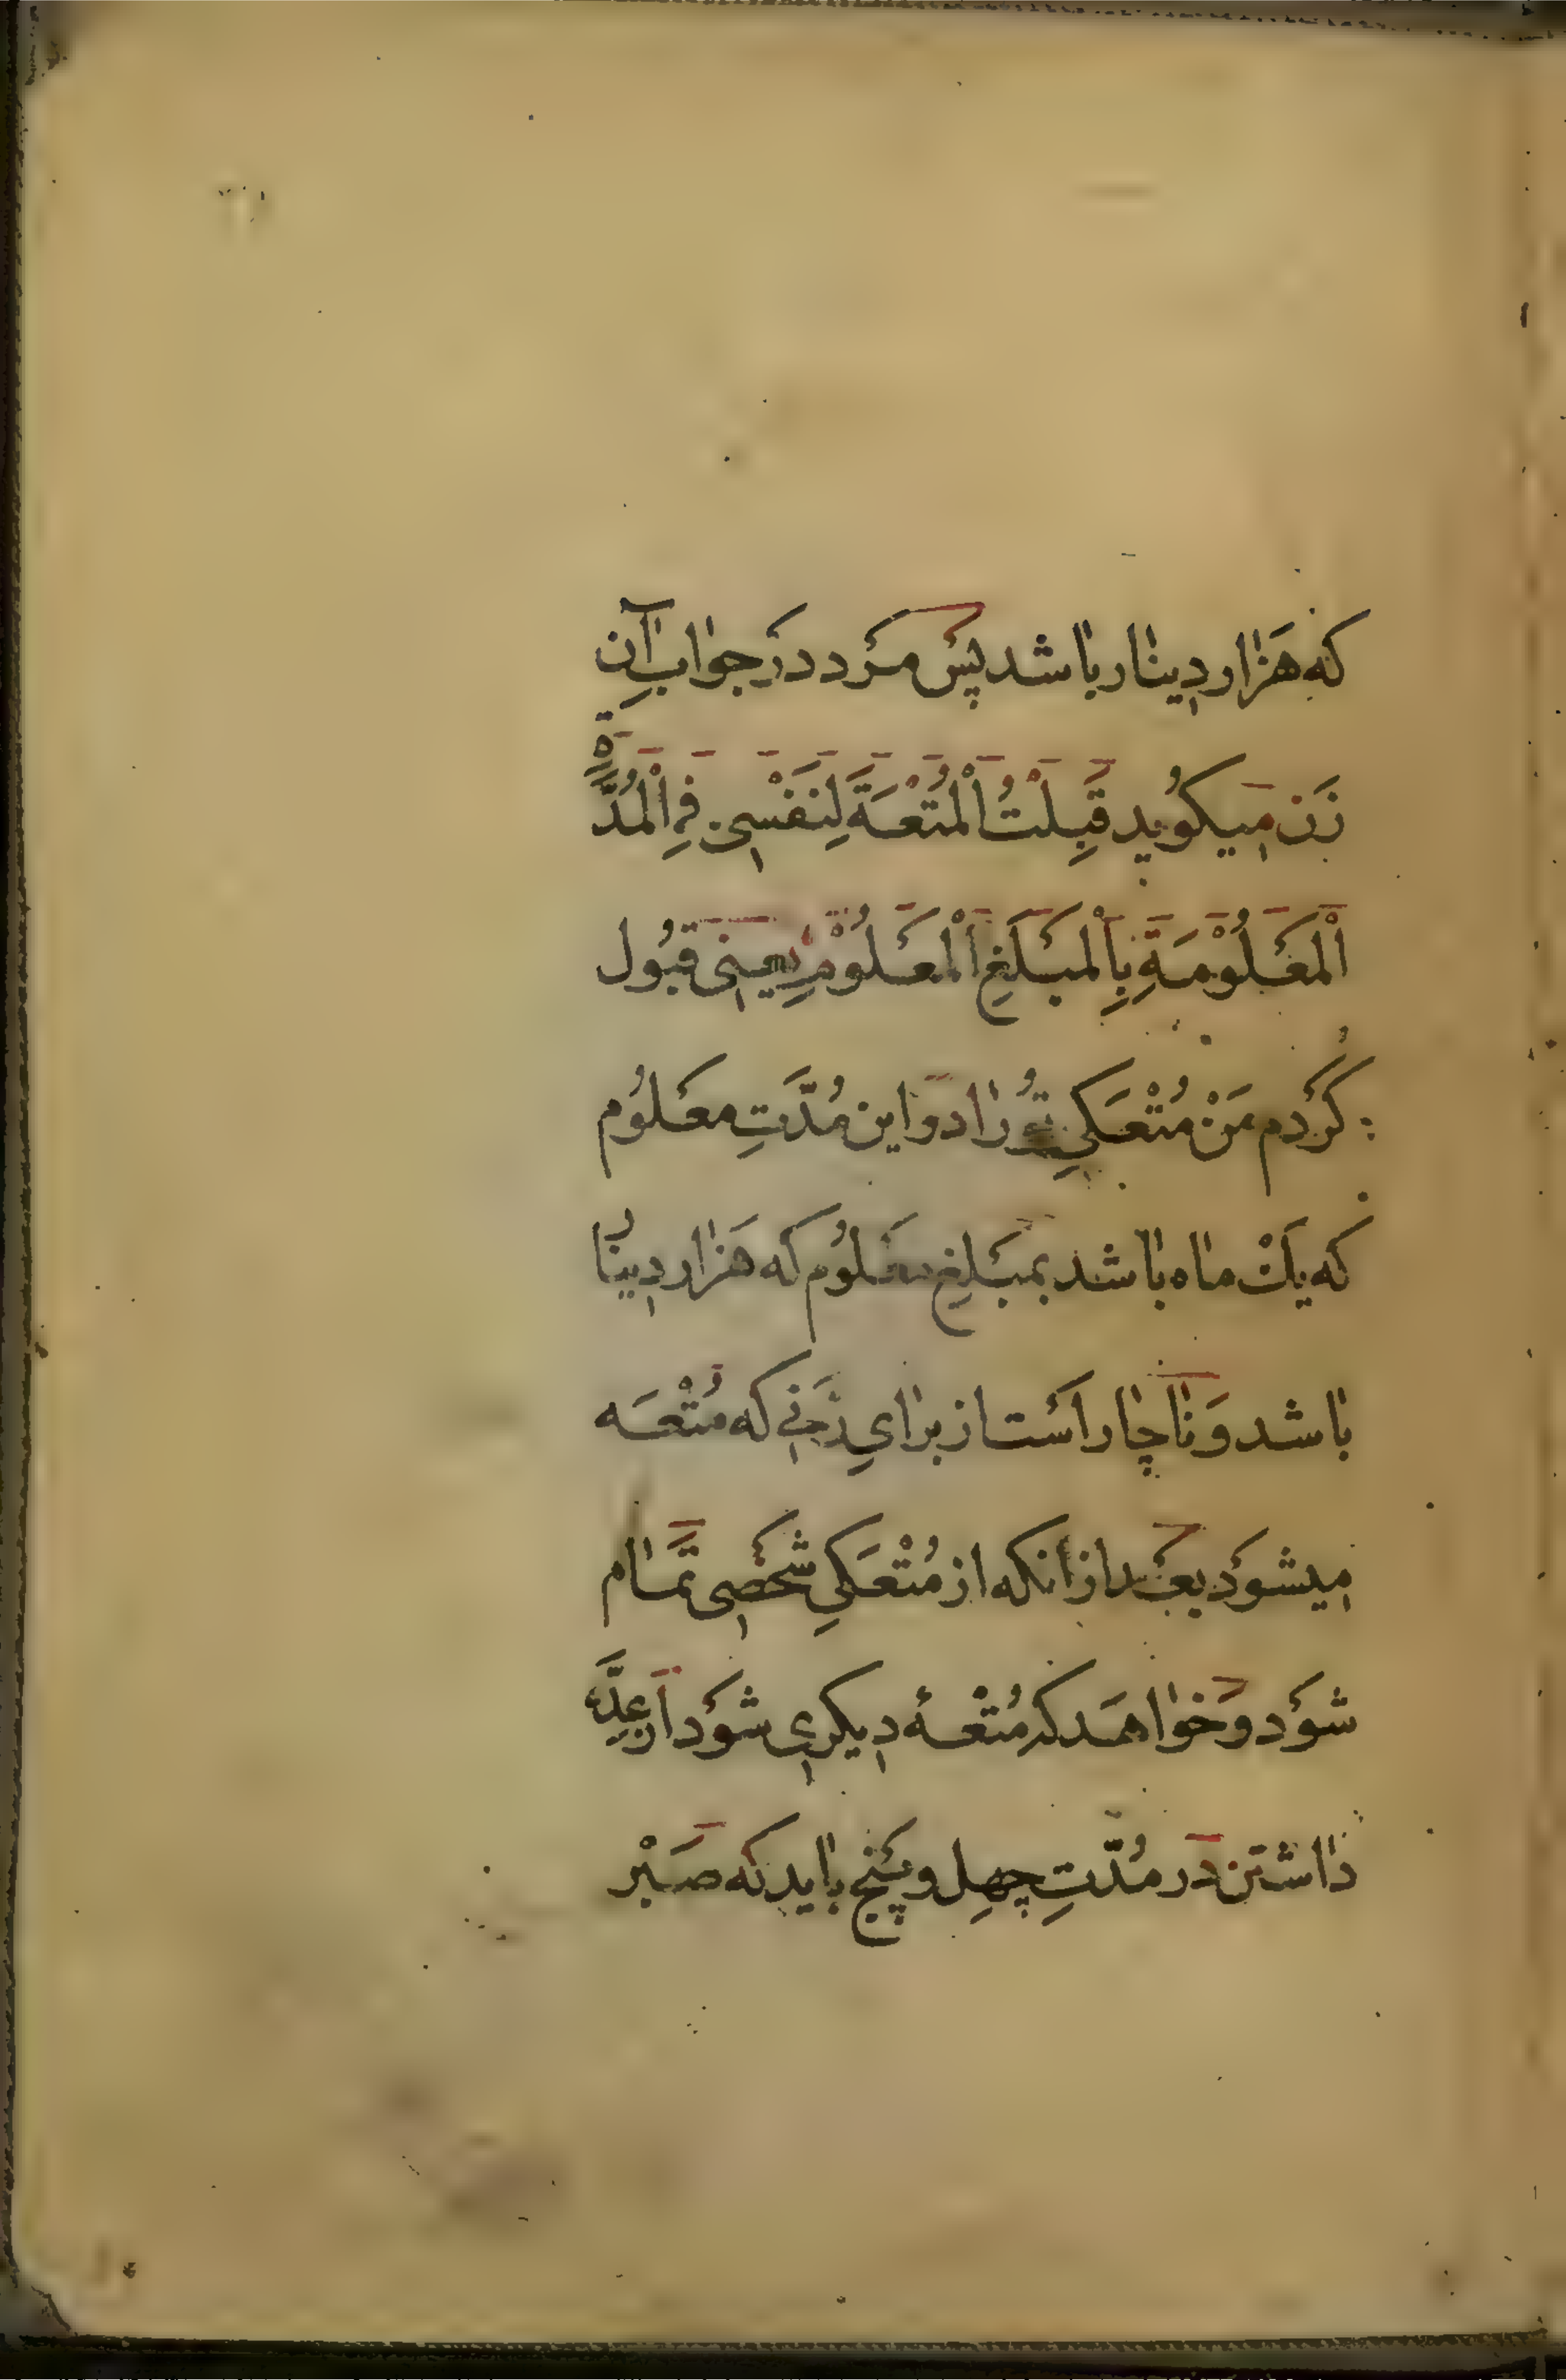 که هَزار دِینار باشد پَس مَرد دَر جواب آن
زَن مِیکوُید قَبِلْتُ اَلْمُتْعَةَ لِنَفْسِی فِی اَلْمُدَّةِ
اَلْمَعْلُوْمَةِ بِاَلْمَبْلَغِ اَلْمَعْلُوْمِ یَعنِی قبُول
کَردم مَنْ مُتْعَکیِ تُو را دَر این مُدَّتِ مَعلُوم
که یَکْ ماه باشد بمَبلَغِ مَعلُوم که هَزار دِینار
باشد وَ ناچار اَست از برایِ زَنی که مُتْعَه
مِیشود بَعد از انکه از مُتْعَکیِ شَخصِی تَمام
شَود وَ خواهَد که مُتْعهٔ دِیکرِی شَود اَز عِدَّه
داشتن دَر مُدّتِ چهِل و پَنج باید که صَبْر